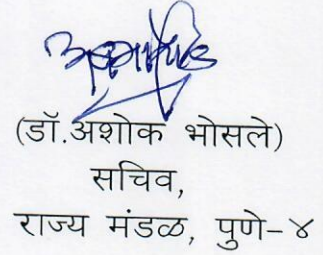 (डॉ.अशोक भोसले)
सचिव,
राज्य मंडळ, पुणे-४